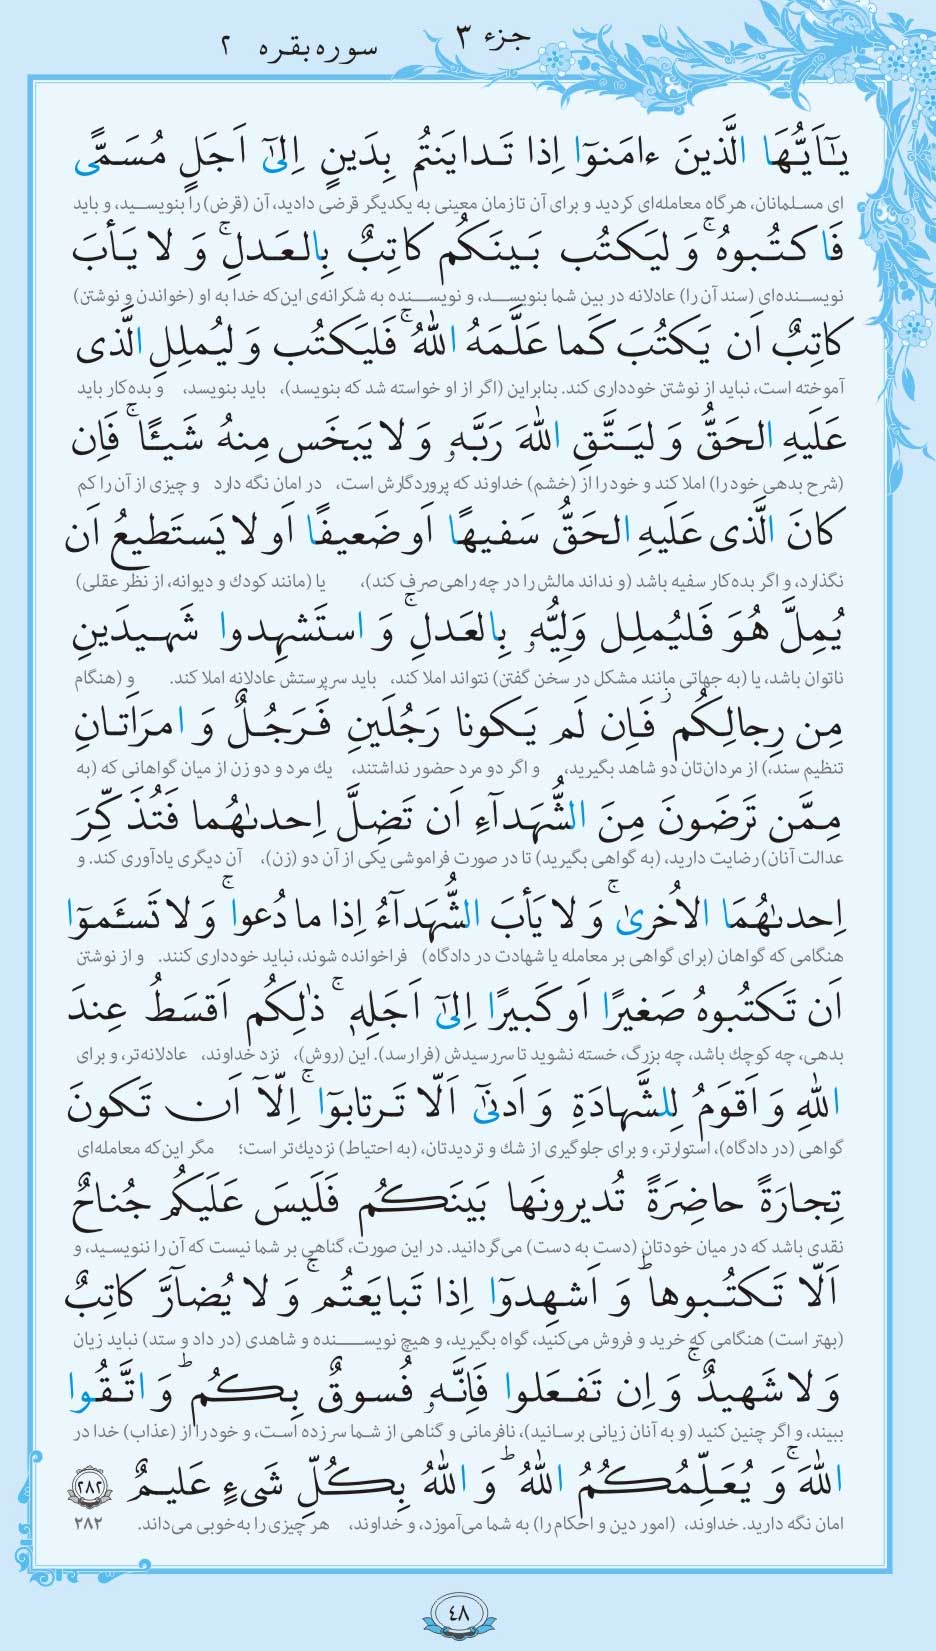 جزء ۳
سوره بقره ۲
یـٰٓاَیُّهَا الَّذینَ ءامَنوٓا اِذا تَدایَنتُم بِدَینٍ اِلیٰٓ اَجَلٍ مُسَمًّی
ای مسلمانان، هرگاه معامله‌ای کردید و برای آن تا زمان معینی به یکدیگر قرضی دادید، آن (قرض) را بنویسـید، و باید
فَاکتُبوهُ ۚ وَ لیَکتُب بَینَکُم کاتِبٌ بِالعَدلِ ۚ وَ لا یَأبَ
نویسـنده‌ای (سند آن را) عادلانه در بین شما بنویسـد، و نویسـنده به شکرانه‌ی این‌که خدا به او (خواندن و نوشتن)
کاتِبٌ اَن یَکتُبَ کَما عَلَّمَهُ اللّٰهُ ۚ فَلیَکتُب وَ لیُملِلِ الَّذی
آموخته است، نباید از نوشتن خودداری کند. بنابراین (اگر از او خواسته شد که بنویسد)، باید بنویسد، و بده‌کار باید
عَلَیهِ الحَقُّ وَ لیَـتَّقِ اللّٰهَ رَبَّهٗ وَ لا یَبخَس مِنهُ شَیئًا ۚ فَاِن
(شرح بدهی خود را) املا کند و خود را از (خشم) خداوند که پروردگارش است، در امان نگه دارد و چیزی از آن را کم
کانَ الَّذی عَلَیهِ الحَقُّ سَفیهًا اَو ضَعیفًا اَو لا یَستَطیعُ اَن
نگذارد، و اگر بده‌کار سفیه باشد (و نداند مالش را در چه راهی صرف کند)، یا (مانند کودك و دیوانه، از نظر عقلی)
یُمِلَّ هُوَ فَلیُملِل وَلِیُّهٗ بِالعَدلِ ۚ وَ استَشهِدوا شَهیدَینِ
ناتوان باشد، یا (به جهاتی مانند مشکل در سخن گفتن) نتواند املا کند، باید سرپرستش عادلانه املا کند. و (هنگام
مِن رِجالِکُم ۖ فَاِن لَم یَکونا رَجُلَینِ فَرَجُلٌ وَ امرَاَتانِ
تنظیم سند،) از مردان‌تان دو شاهد بگیرید، و اگر دو مرد حضور نداشتند، یك مرد و دو زن از میان گواهانی که (به
مِمَّن تَرضَونَ مِنَ الشُّهَدآءِ اَن تَضِلَّ اِحدىٰهُما فَتُذَکِّرَ
عدالت آنان) رضایت دارید، (به گواهی بگیرید) تا در صورت فراموشی یکی از آن دو (زن)، آن دیگری یادآوری کند. و
اِحدىٰهُمَا الاُخریٰ ۚ وَ لا یَأبَ الشُّهَدآءُ اِذا ما دُعوا ۚ وَ لا تَسئَموٓا
هنگامی که گواهان (برای گواهی بر معامله یا شهادت در دادگاه) فراخوانده شوند، نباید خودداری کنند. و از نوشتن
اَن تَکتُبوهُ صَغیرًا اَو کَبیرًا اِلیٰٓ اَجَلِهٖ ۚ ذٰلِکُم اَقسَطُ عِندَ
بدهی، چه کوچك باشد، چه بزرگ، خسته نشوید تا سررسیدش (فرا رسد). این (روش)، نزد خداوند، عادلانه‌تر، و برای
اللّٰهِ وَ اَقوَمُ لِلشَّهادَةِ وَ اَدنیٰٓ اَلّا تَرتابوٓا ۚ اِلّآ اَن تَکونَ
گواهی (در دادگاه)، استوارتر، و برای جلوگیری از شك و تردیدتان، (به احتیاط) نزدیك‌تر است؛ مگر این‌که معامله‌ای
تِجارَةً حاضِرَةً تُدیرونَها بَینَکُم فَلَیسَ عَلَیکُم جُناحٌ
نقدی باشد که در میان خودتان (دست به دست) می‌گردانید. در این صورت، گناهی بر شما نیست که آن را ننویسـید، و
اَلّا تَکتُبوها ۗ وَ اَشهِدوٓا اِذا تَبایَعتُم ۚ وَ لا یُضآرَّ کاتِبٌ
(بهتر است) هنگامی که خرید و فروش می‌کنید، گواه بگیرید، و هیچ نویسـنده و شاهدی (در داد و ستد) نباید زیان
وَ لا شَهیدٌ ۚ وَ اِن تَفعَلوا فَاِنَّهٗ فُسوقٌ بِکُم ۗ وَ اتَّقُوا
ببیند، و اگر چنین کنید (و به آنان زیانی برسانید)، نافرمانی و گناهی از شما سر زده است، و خود را از (عذاب) خدا در
اللّٰهَ ۚ وَ یُعَلِّمُکُمُ اللّٰهُ ۗ وَ اللّٰهُ بِکُلِّ شَیءٍ عَلیمٌ ۲۸۲
امان نگه دارید. خداوند، (امور دین و احکام را) به شما می‌آموزد، و خداوند، هر چیزی را به‌خوبی می‌داند. ۲۸۲
۴۸